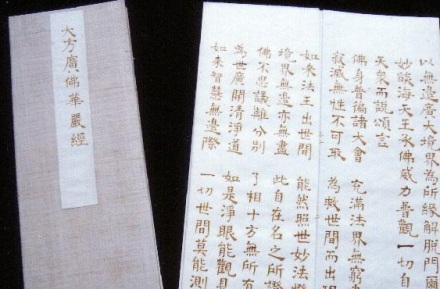 大方廣佛華嚴經
以無邊廣大境界為所緣解脫門爾
妙燄海天王承佛威力普觀一切自
天衆而說頌言
佛身普徧諸大會 充滿法界無窮
寂滅無性不可取 為救世間而出現
如來法王出世間 能然照世妙法燈
境界無邊亦無盡 此自在名之所證
佛不思議離分別 了相十方無所有
為世廣開清淨道 如是淨眼能觀見
如來智慧無邊際 一切世間莫能測